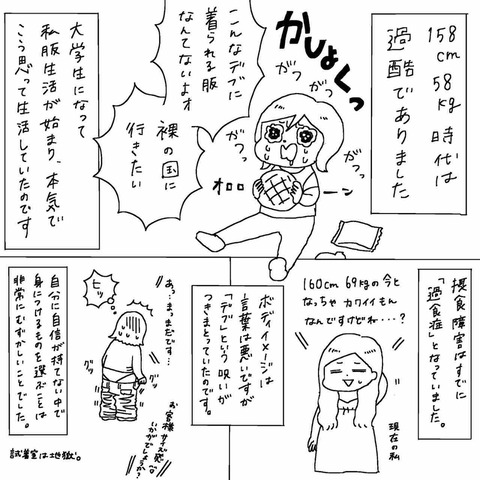 158
cm
58
kg
時代は
過酷でありました
かしょくっ
ガつ
ガつ
ガつっ
ガつっ
こんなデブに
着られる服
なんてないよオ
裸の国に
行きたい
オロロ
ーン
大学生になって
私服生活が始まり、本気で
こう思って生活していたのです
摂食障害はすでに
「過食症」となっていました。
160cm 69kgの今と
なっちゃカワイイもん
なんですけどね・・・?
現在の私
ボディイメージは
言葉は悪いですが
「デブ」という呪いが
つきまとっていたのです。
あっ…まっまだです…
ヒッ
グッ
グッ
お客様サイズ感
いかがでしょうか?
自分に自信が持てない中で
身につけるものを選ぶことは
非常にむずかしいことでした。
試着室は地獄。